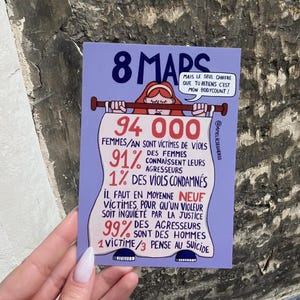 8 MARS
MAIS LE SEUL CHIFFRE
QUE TU RETIENS C'EST
MON BODYCOUNT !
94 000
FEMMES/AN SONT VICTIMES DE VIOLS
91% DES FEMMES
CONNAISSENT LEURS
AGRESSEURS
1% DES VIOLS CONDAMNÉS
IL FAUT EN MOYENNE NEUF
VICTIMES POUR QU'UN VIOLEUR
SOIT INQUIÉTÉ PAR LA JUSTICE
99% DES AGRESSEURS
SONT DES HOMMES
1 VICTIME/3 PENSE AU SUICIDE